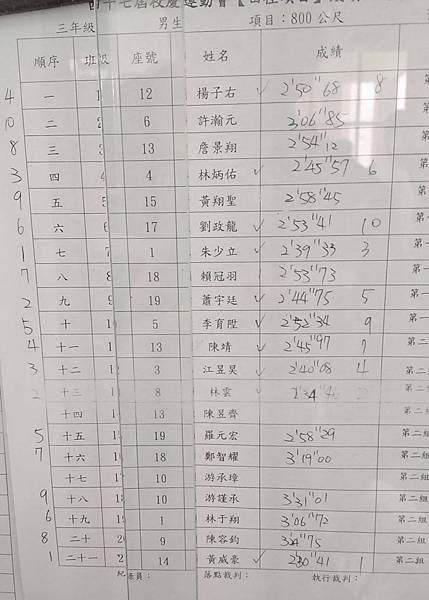 十七屆校慶運動會【田徑項目】
三年級 男生 項目：800公尺
順序 班級 座號 姓名 成績
4 一 1 12 楊子右 ✓ 2'50"68 8 第一
10 二 2 6 許瀚元 3'06"85 第一
8 三 3 13 詹景翔 2'54"12 第一
3 四 4 4 林炳佑 ✓ 2'45"57 6 第一
9 五 5 15 黃翔聖 2'58"45 第一
6 六 6 17 劉政龍 ✓ 2'53"41 10 第一
1 七 7 1 朱少立 ✓ 2'39"33 3 第一
7 八 8 18 賴冠羽 2'53"73 第一
2 九 9 19 蕭宇廷 ✓ 2'44"75 5 第一
5 十 1 5 李育陞 ✓ 2'52"34 9 第一
4 十一 1 13 陳靖 ✓ 2'45"97 7 第二
3 十二 1 3 江昱昊 ✓ 2'40"08 4 第二組
2 十三 1 8 林雲 ✓ 2'34" 2 第二組
十四 1 13 陳昱齊 第二組
5 十五 1 19 羅元宏 2'58"29 第二組
7 十六 1 18 鄭智耀 3'19"00 第二組
十七 1 10 游承璋 第二組
9 十八 1 10 游謹承 3'31"01 第二組
6 十九 1 1 林于翔 3'06"72 第二組
8 二十 2 9 陳容鈞 3'24"75 第二組
1 二十一 2 14 黃威豪 ✓ 2'30"41 1 第二組
紀錄員： 落點裁判： 執行裁判：